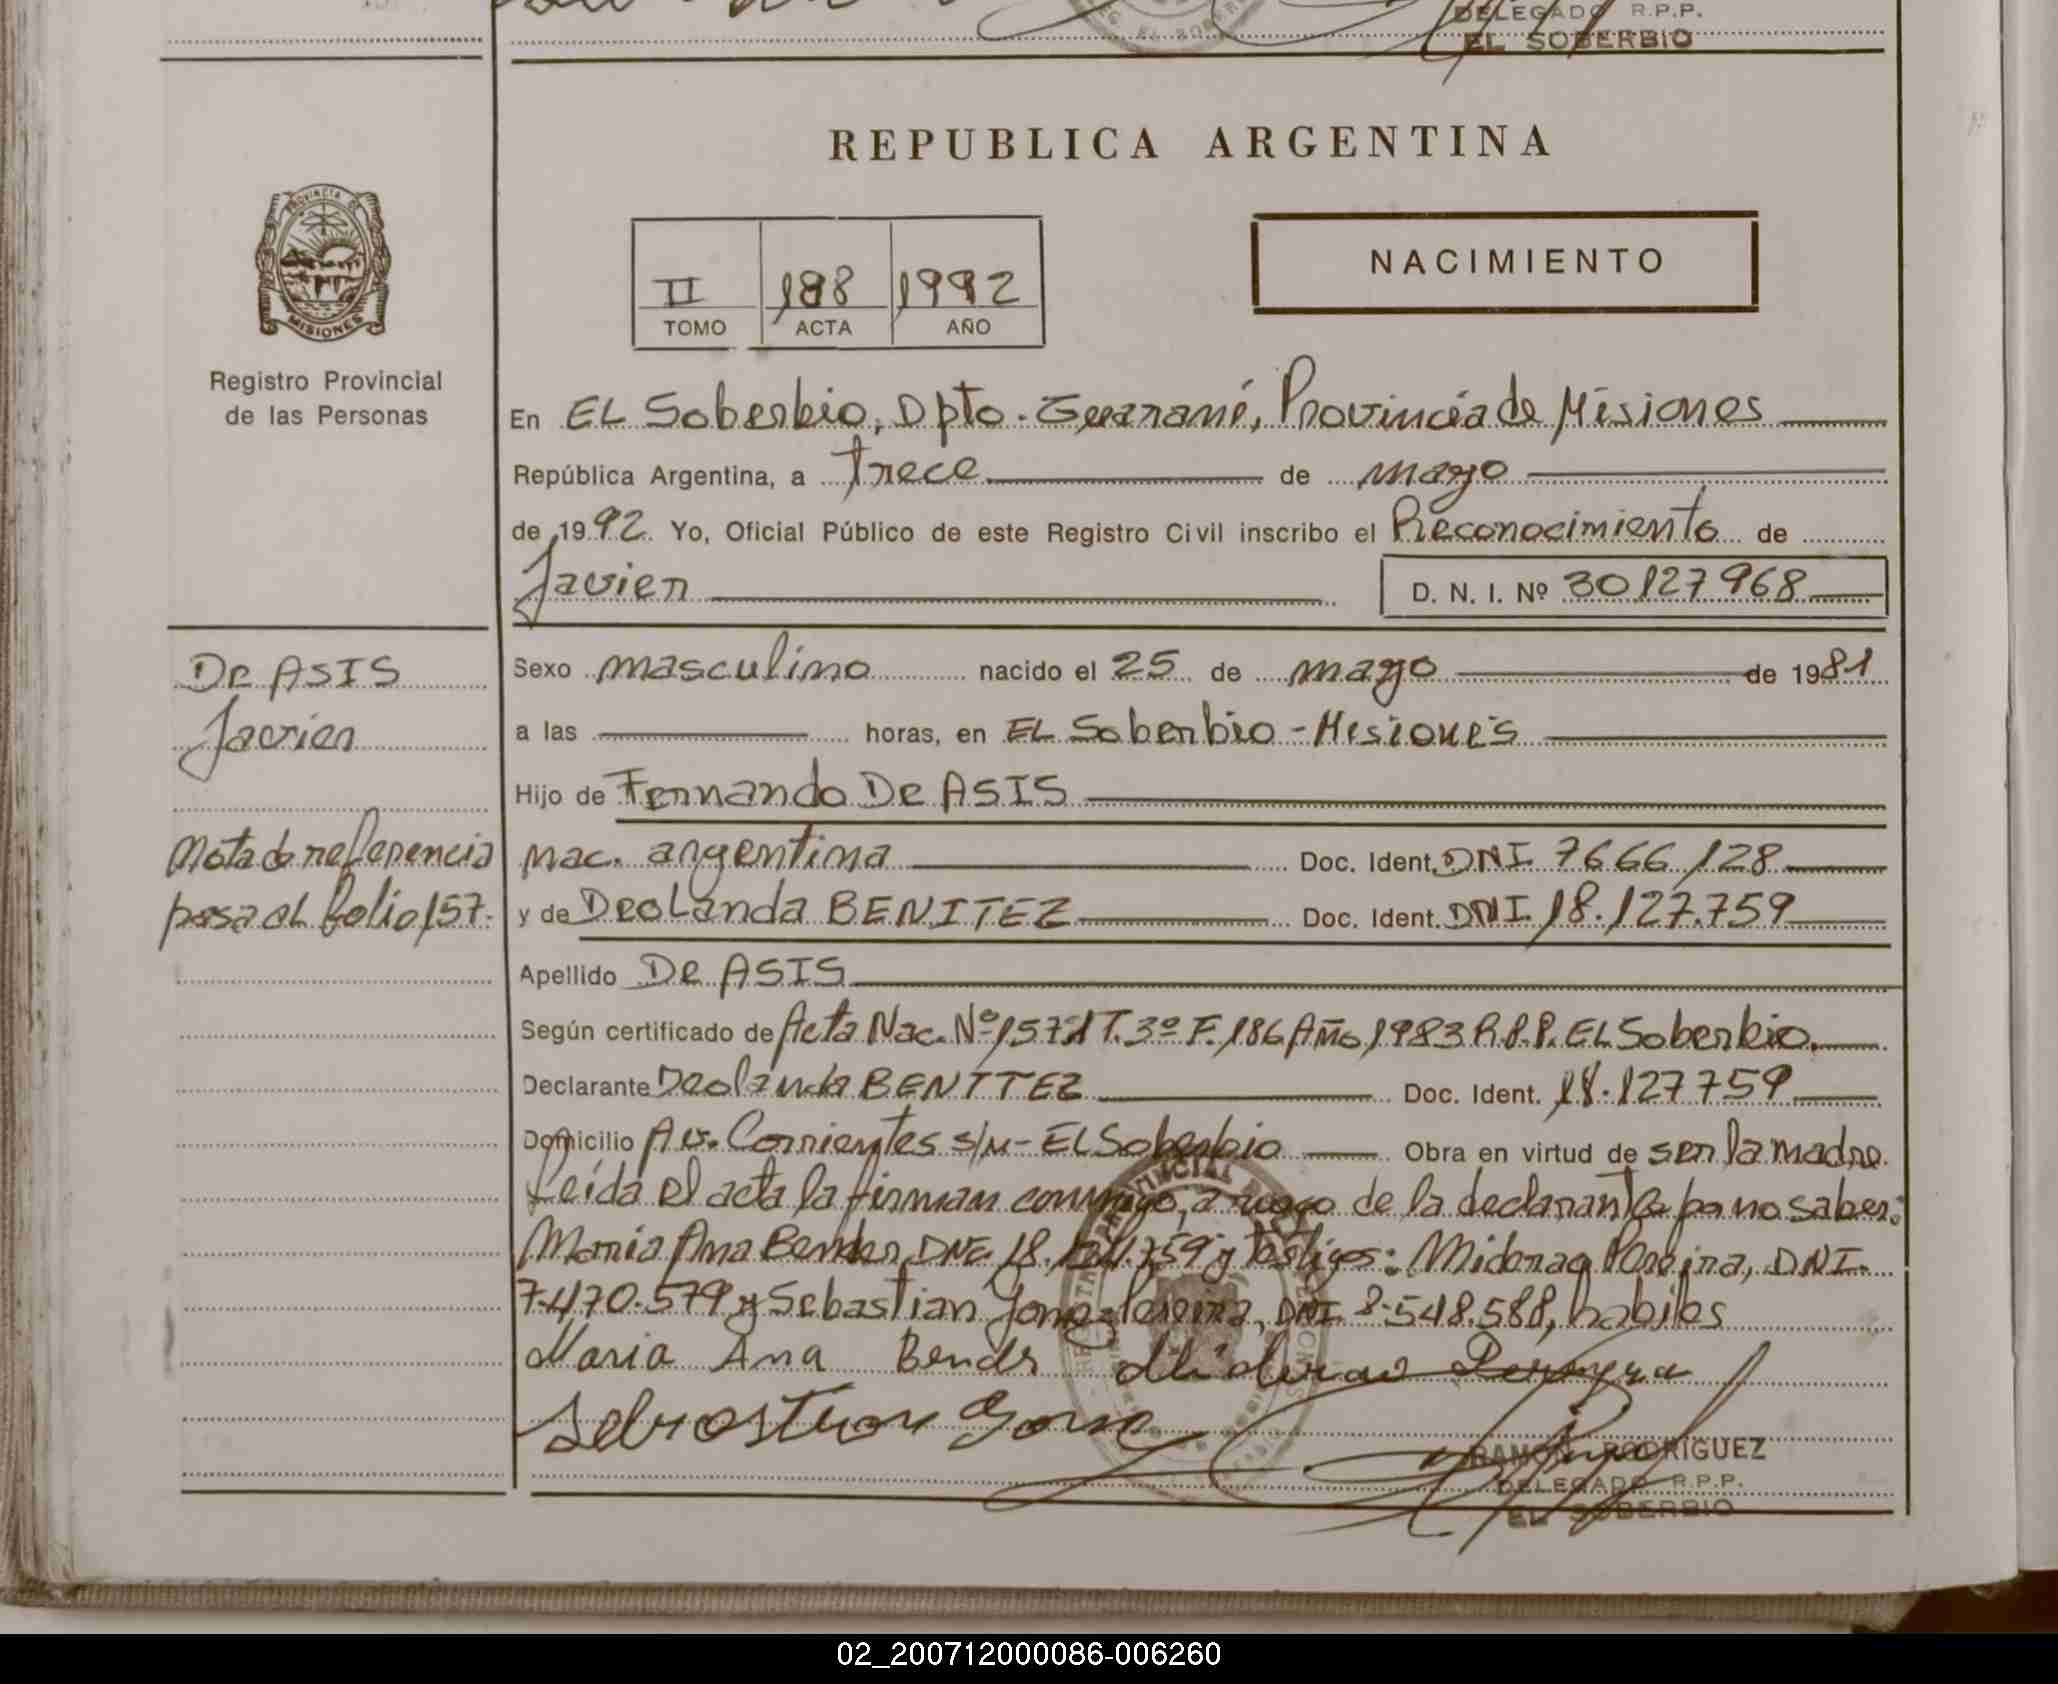 DELEGADO R.P.P.
EL SOBERBIO
REPUBLICA ARGENTINA
PROVINCIA DE
MISIONES
Registro Provincial
de las Personas
II 188 1992
TOMO ACTA AÑO
NACIMIENTO
En EL Soberbio, Dpto. Guaraní, Provincia de Misiones
República Argentina, a trece de mayo
de 1992. Yo, Oficial Público de este Registro Civil inscribo el Reconocimiento de
Javier D. N. I. Nº 30127968
De ASIS
Javier
Nota de referencia
pasa al folio 157.
Sexo masculino nacido el 25 de mayo de 1981
a las horas, en EL Soberbio - Misiones
Hijo de Fernando De ASIS
nac. argentina Doc. Ident. DNI 7666128
y de DeoLanda BENITEZ Doc. Ident. DNI. 18.127.759
Apellido De ASIS
Según certificado de Acta Nac. Nº 1571 T. 3º F. 186 Año 1983 R.P.P. EL Soberbio.
Declarante Deolanda BENITEZ Doc. Ident. 18.127759
Domicilio Av. Corrientes s/n - EL Soberbio Obra en virtud de ser la madre.
Leída el acta la firman conmigo, a ruego de la declarante por no saber:
Maria Ana Bender, DNI. y testigos: Miderao Pereira, DNI.
7.470.579 y Sebastian Pereira, DNI. 8.548.588, habiles
Maria Ana Bender Miderao Pereyra
Sebastian
RAMON RODRIGUEZ
DELEGADO R.P.P.
EL SOBERBIO
02_200712000086-006260